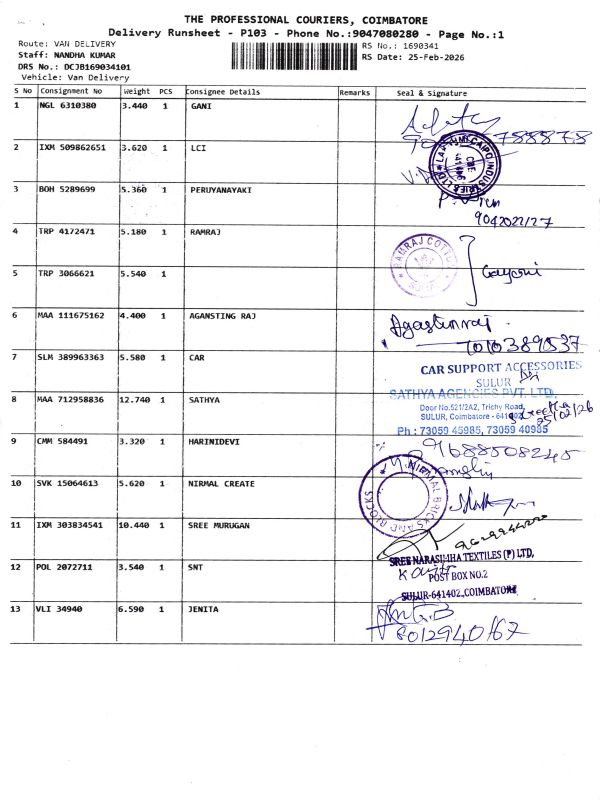 THE PROFESSIONAL COURIERS, COIMBATORE
Delivery Runsheet - P103 - Phone No.:9047080280 - Page No.:1
Route: VAN DELIVERY
RS No.: 1690341
Staff: NANDHA KUMAR
RS Date: 25-Feb-2026
DRS No.: DCJB169034101
Vehicle: Van Delivery
S No Consignment No Weight PCS Consignee Details Remarks Seal & Signature
1 NGL 6310380 3.440 1 GANI
2 IXM 509862651 3.620 1 LCI
3 BOH 5289699 5.360 1 PERUYANAYAKI
4 TRP 4172471 5.180 1 RAMRAJ
RAMRAJ COTTON
SULUR
5 TRP 3066621 5.540 1
Gayathri
6 MAA 111675162 4.400 1 AGANSTING RAJ
Agastinraj
7010389537
7 SLM 389963363 5.580 1 CAR
CAR SUPPORT ACCESSORIES
SULUR
8 MAA 712958836 12.740 1 SATHYA
SATHYA AGENCIES PVT. LTD.
Door No.521/2A2, Trichy Road,
SULUR, Coimbatore - 641402
25/02/26
Ph : 73059 45985, 73059 40985
9 CMM 584491 3.320 1 HARINIDEVI
9688508245
10 SVK 15064613 5.620 1 NIRMAL CREATE
NIRMAL BRICKS AND BLOCKS
11 IXM 303834541 10.440 1 SREE MURUGAN
12 POL 2072711 3.540 1 SNT
SREE NARASIMHA TEXTILES (P) LTD,
POST BOX NO.2
SULUR-641402, COIMBATORE
13 VLI 34940 6.590 1 JENITA
8012940167